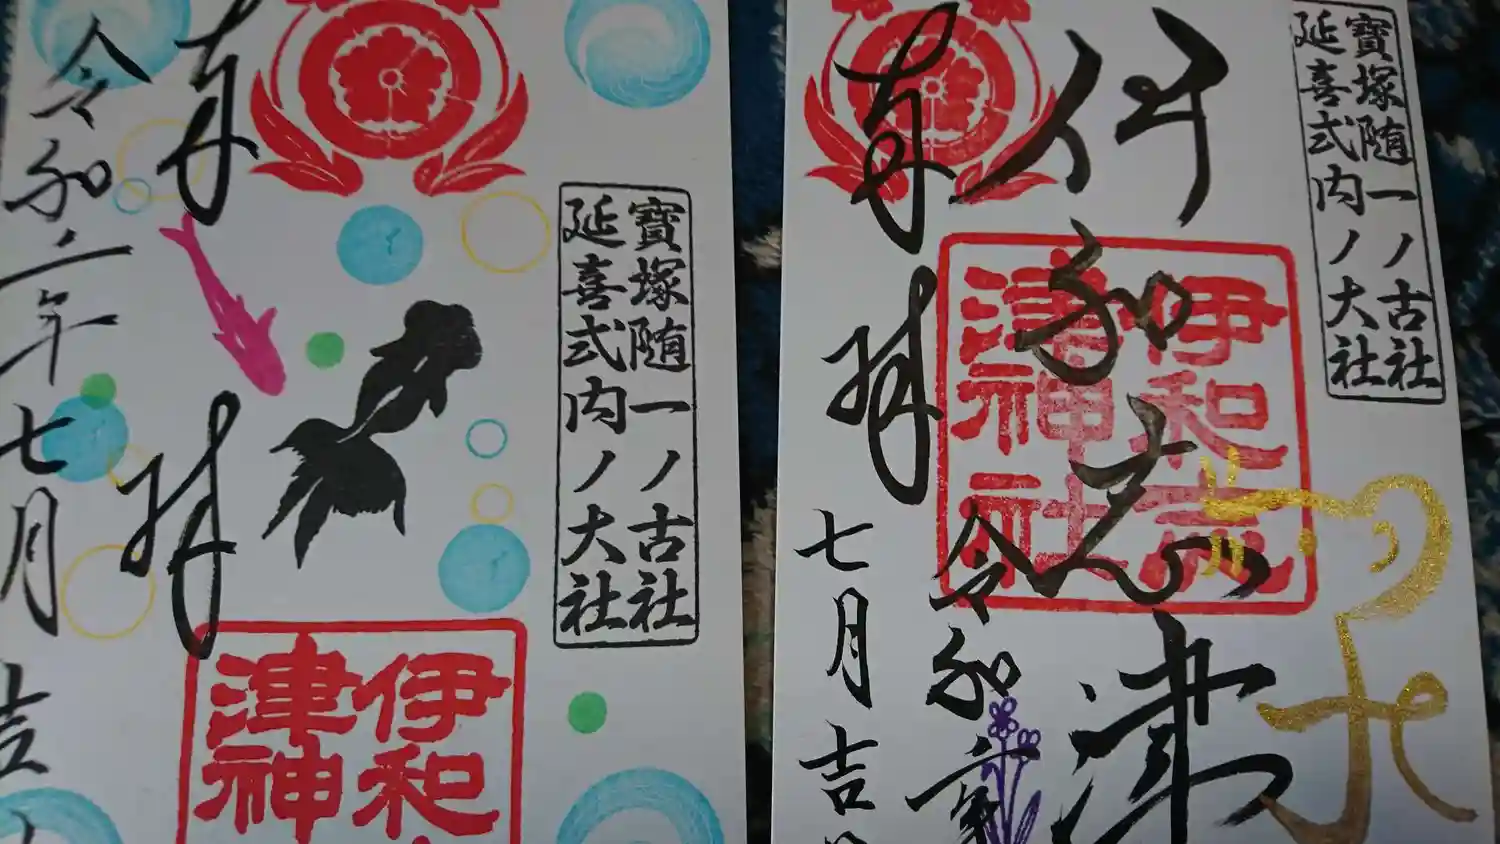 寶塚随一ノ古社
延喜式内ノ大社
奉拝
令和二年七月吉
伊和
津神
寶塚随一ノ古社
延喜式内ノ大社
伊和志津
奉拝
令和二年
七月吉日
伊和志
津神社